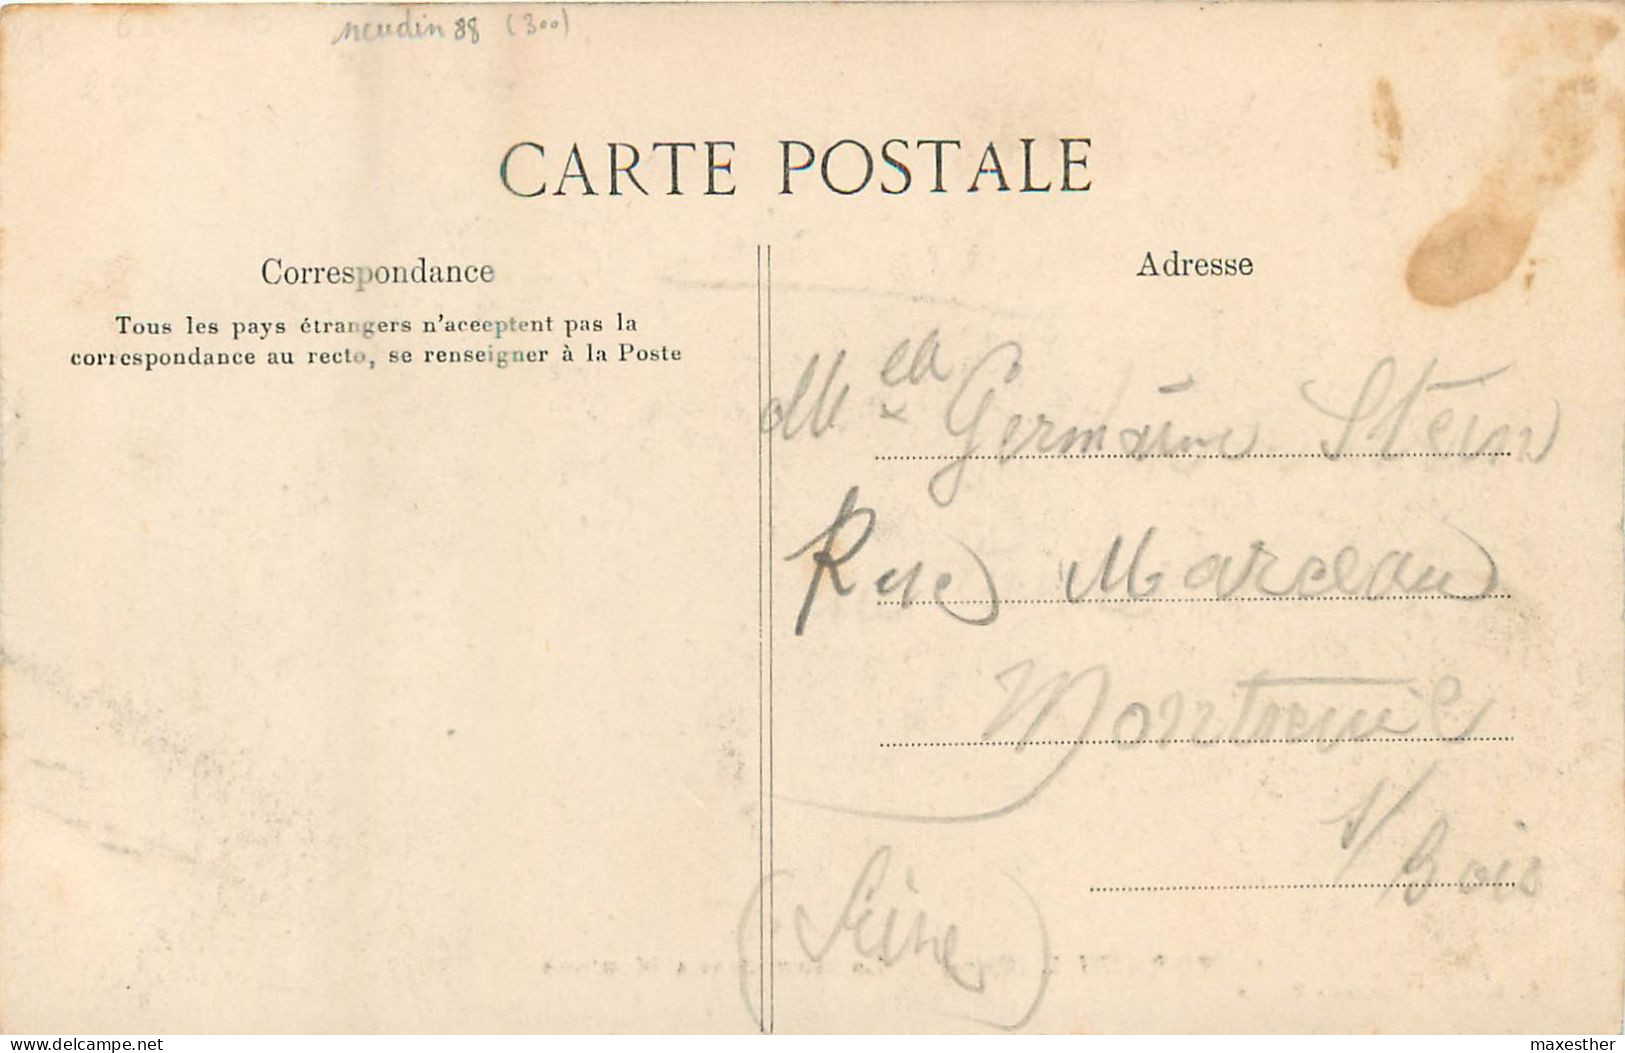 neudin 88 (300)
CARTE POSTALE
Correspondance
Tous les pays étrangers n'aceeptent pas la
correspondance au recto, se renseigner à la Poste
Adresse
Germaine Stein
Rue Marceau
Montreuil
s/ Bois
(Seine)
delcampe.net
maxesther